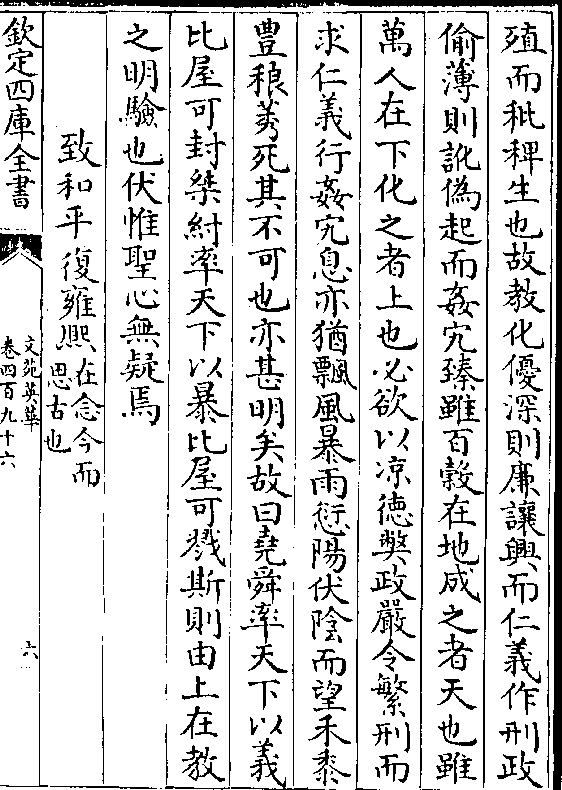 殖而秕稗生也故教化優深則廉讓興而仁義作刑政
偷薄則訛偽起而姦宄臻雖百穀在地成之者天也雖
萬人在下化之者上也必欲以凉徳弊政嚴令繁刑而
求仁義行姦宄息亦猶飄風暴雨愆陽伏陰而望禾黍
豊稂莠死其不可也亦甚明矣故曰堯舜率天下以義
比屋可封桀紂率天下以暴比屋可戮斯則由上在教
之明驗也伏惟聖心無疑焉
致和平復雍熙在念今而
思古也
欽定四庫全書
文苑英華
卷四百九十六
六